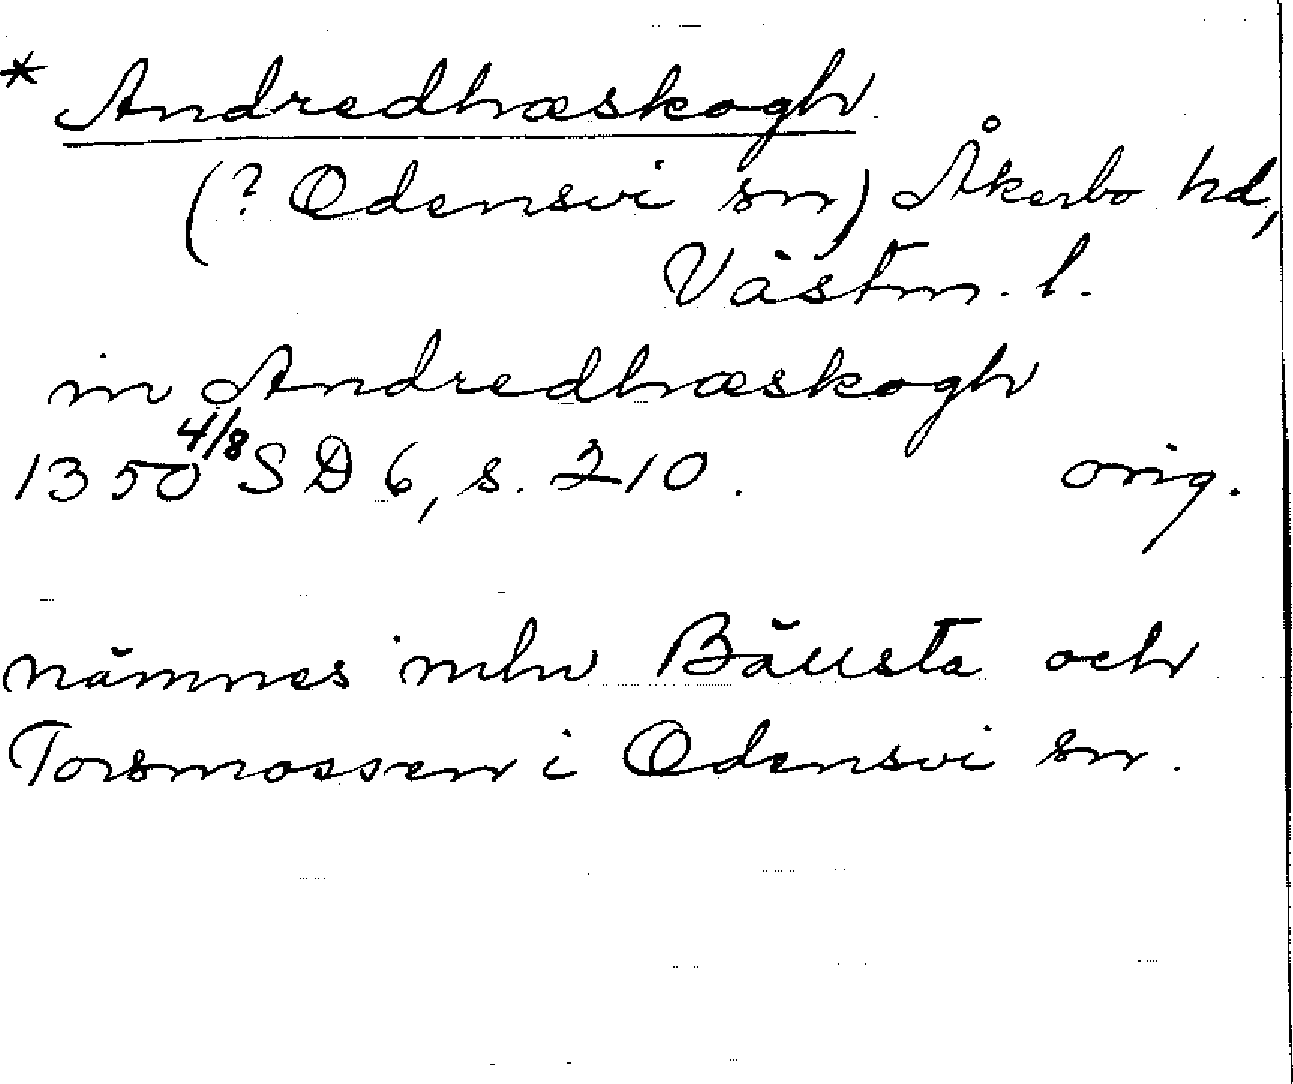 * Andredhæskogh
(? Odensvi sn) Åkerbo hd,
Västm. l.
in Andredhæskogh
1350 4/8 SD 6, s. 210. orig.
nämnes mln Bällsta och
Torsmossen i Odensvi sn.